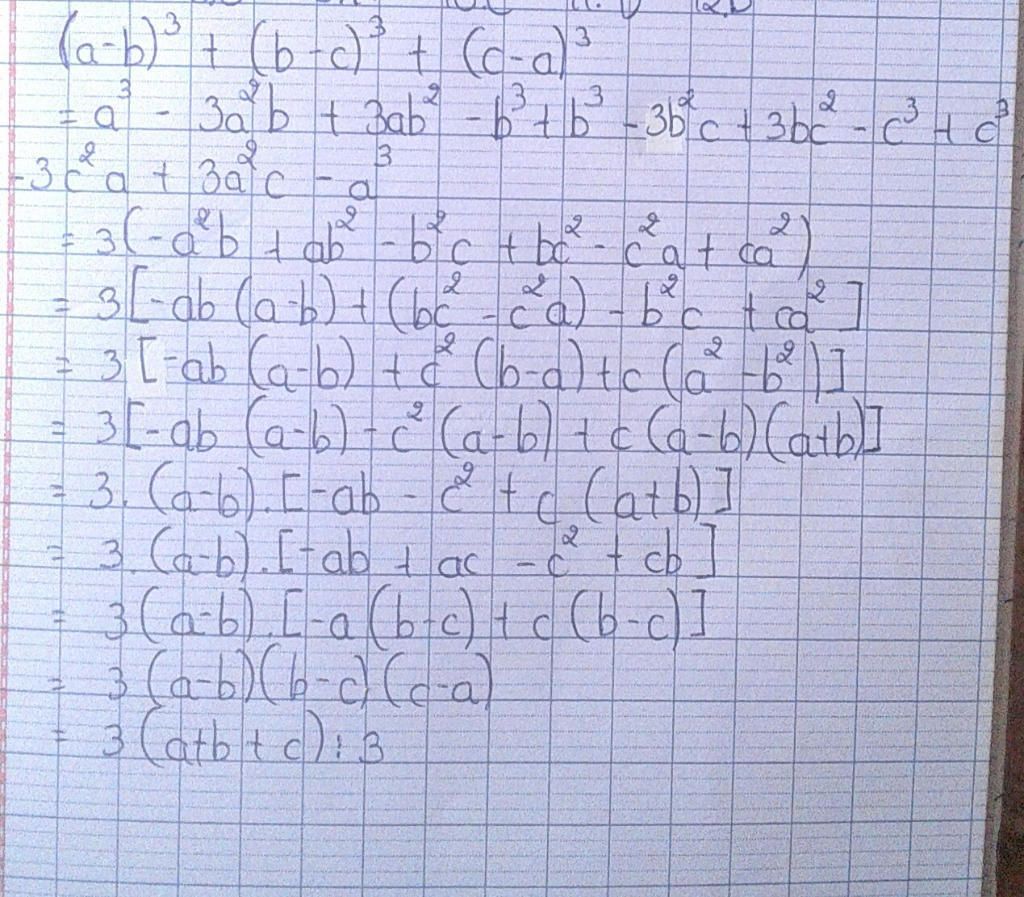 (a-b)³ + (b-c)³ + (c-a)³
= a³ - 3a²b + 3ab² - b³ + b³ - 3b²c + 3bc² - c³ + c³
-3c²a + 3a²c - a³
= 3(-a²b + ab² - b²c + bc² - c²a + ca²)
= 3[-ab(a-b) + (bc² - c²a) - b²c + ca²]
= 3[-ab(a-b) + c²(b-a) + c(a² - b²)]
= 3[-ab(a-b) - c²(a-b) + c(a-b)(a+b)]
= 3.(a-b).[-ab - c² + c(a+b)]
= 3.(a-b).[-ab + ac - c² + cb]
= 3(a-b).[-a(b-c) + c(b-c)]
= 3(a-b)(b-c)(c-a)
= 3(a+b+c):3